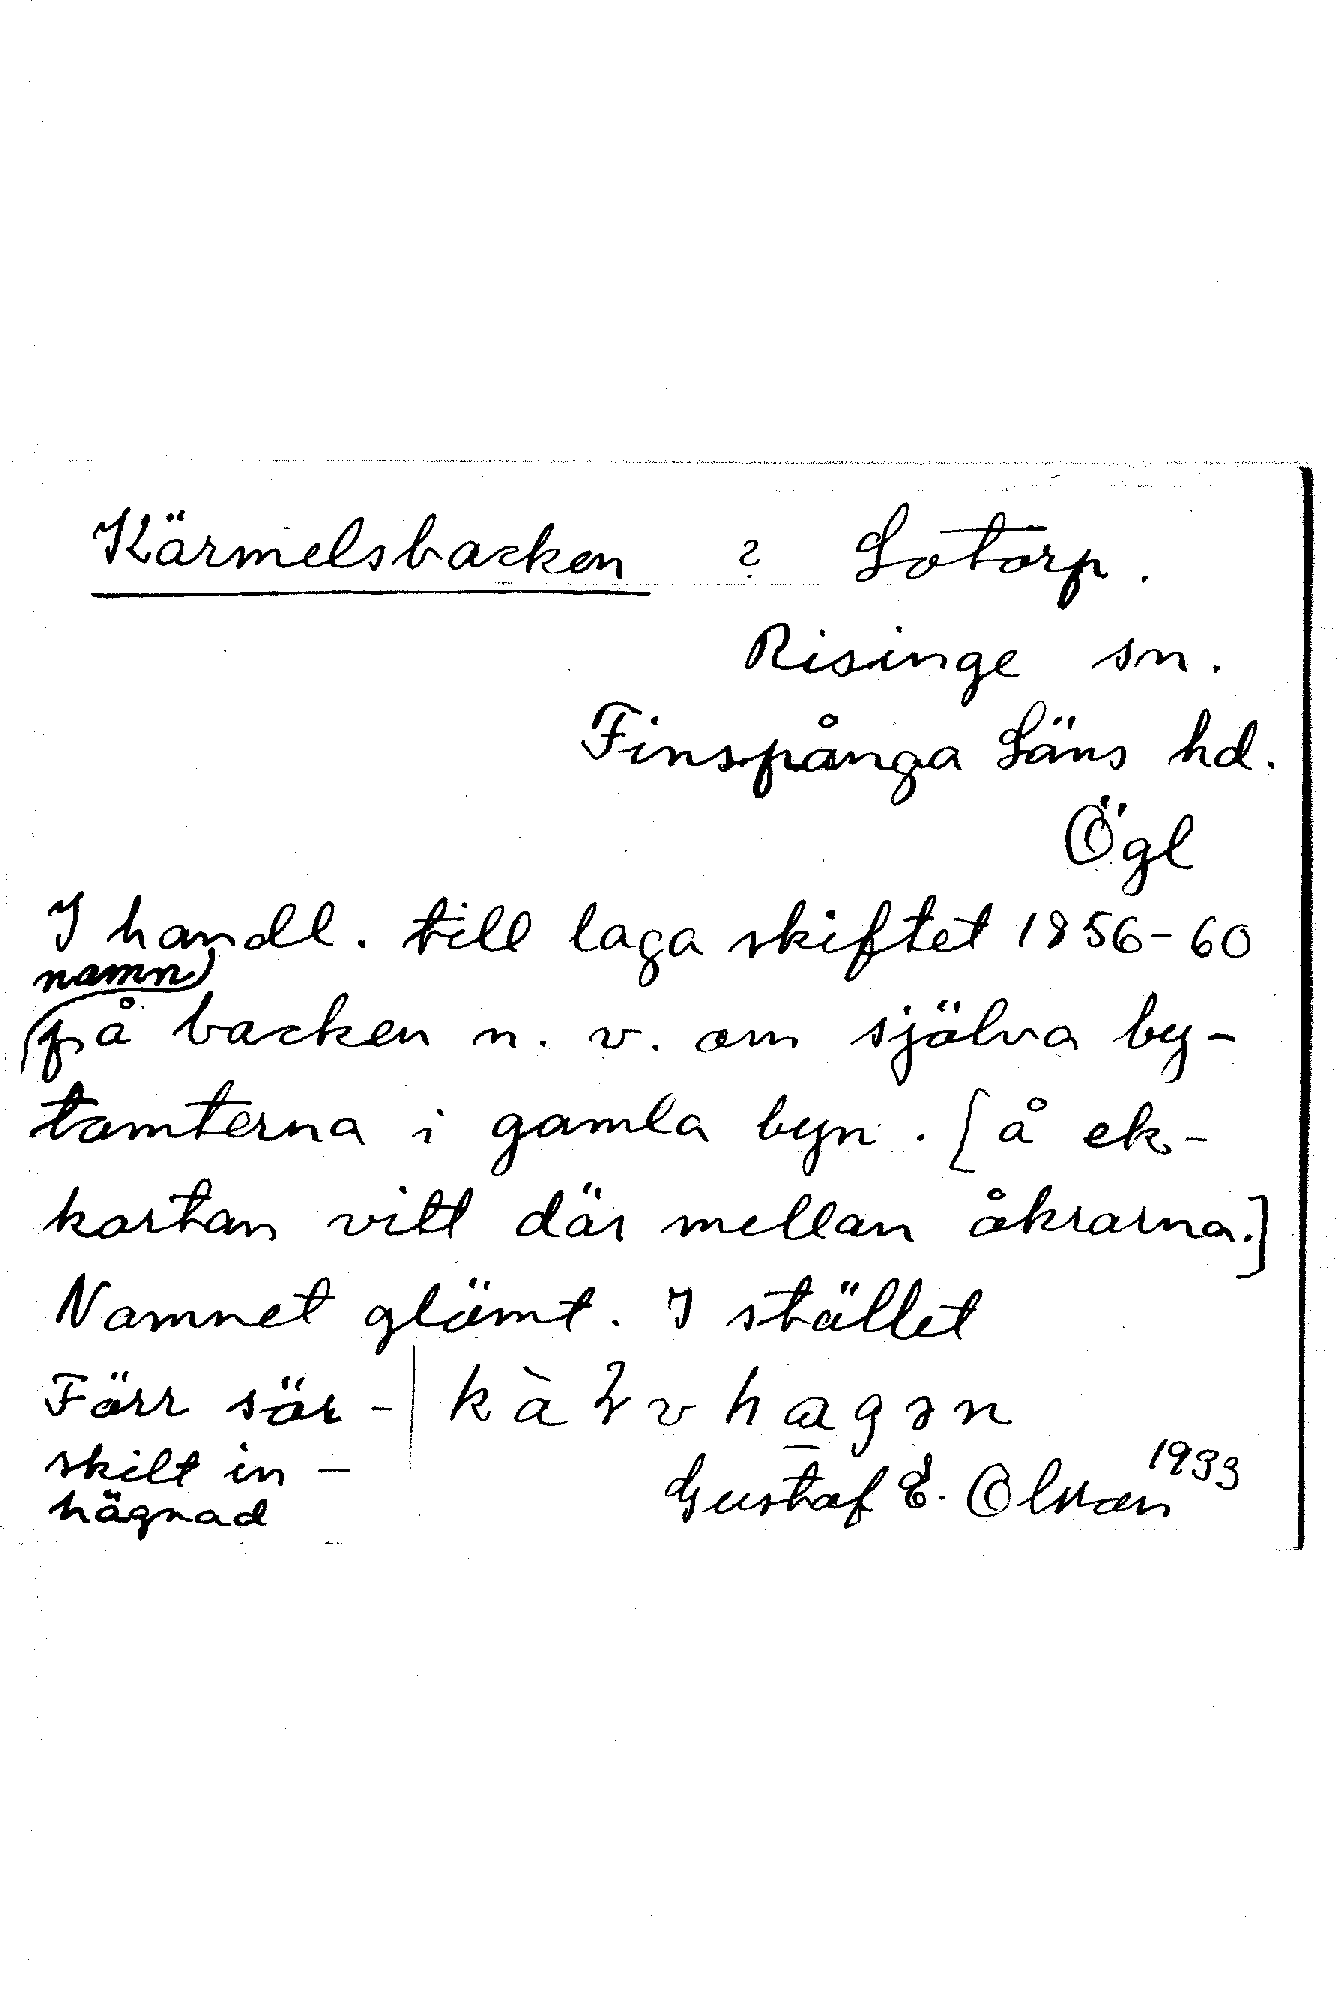 Kärmelsbacken ? Lotorp.
Risinge sn.
Finspånga Läns hd.
Ögl
I handl. till laga skiftet 1856-60
namn
på backen n. v. om själva by-
tomterna i gamla byn. [å ek-
kartan vitt där mellan åkrarna.]
Namnet glömt. I stället
Förr sär- | kàłvhagən
skilt in-
hägnad
Gustaf E. Olsson 1933